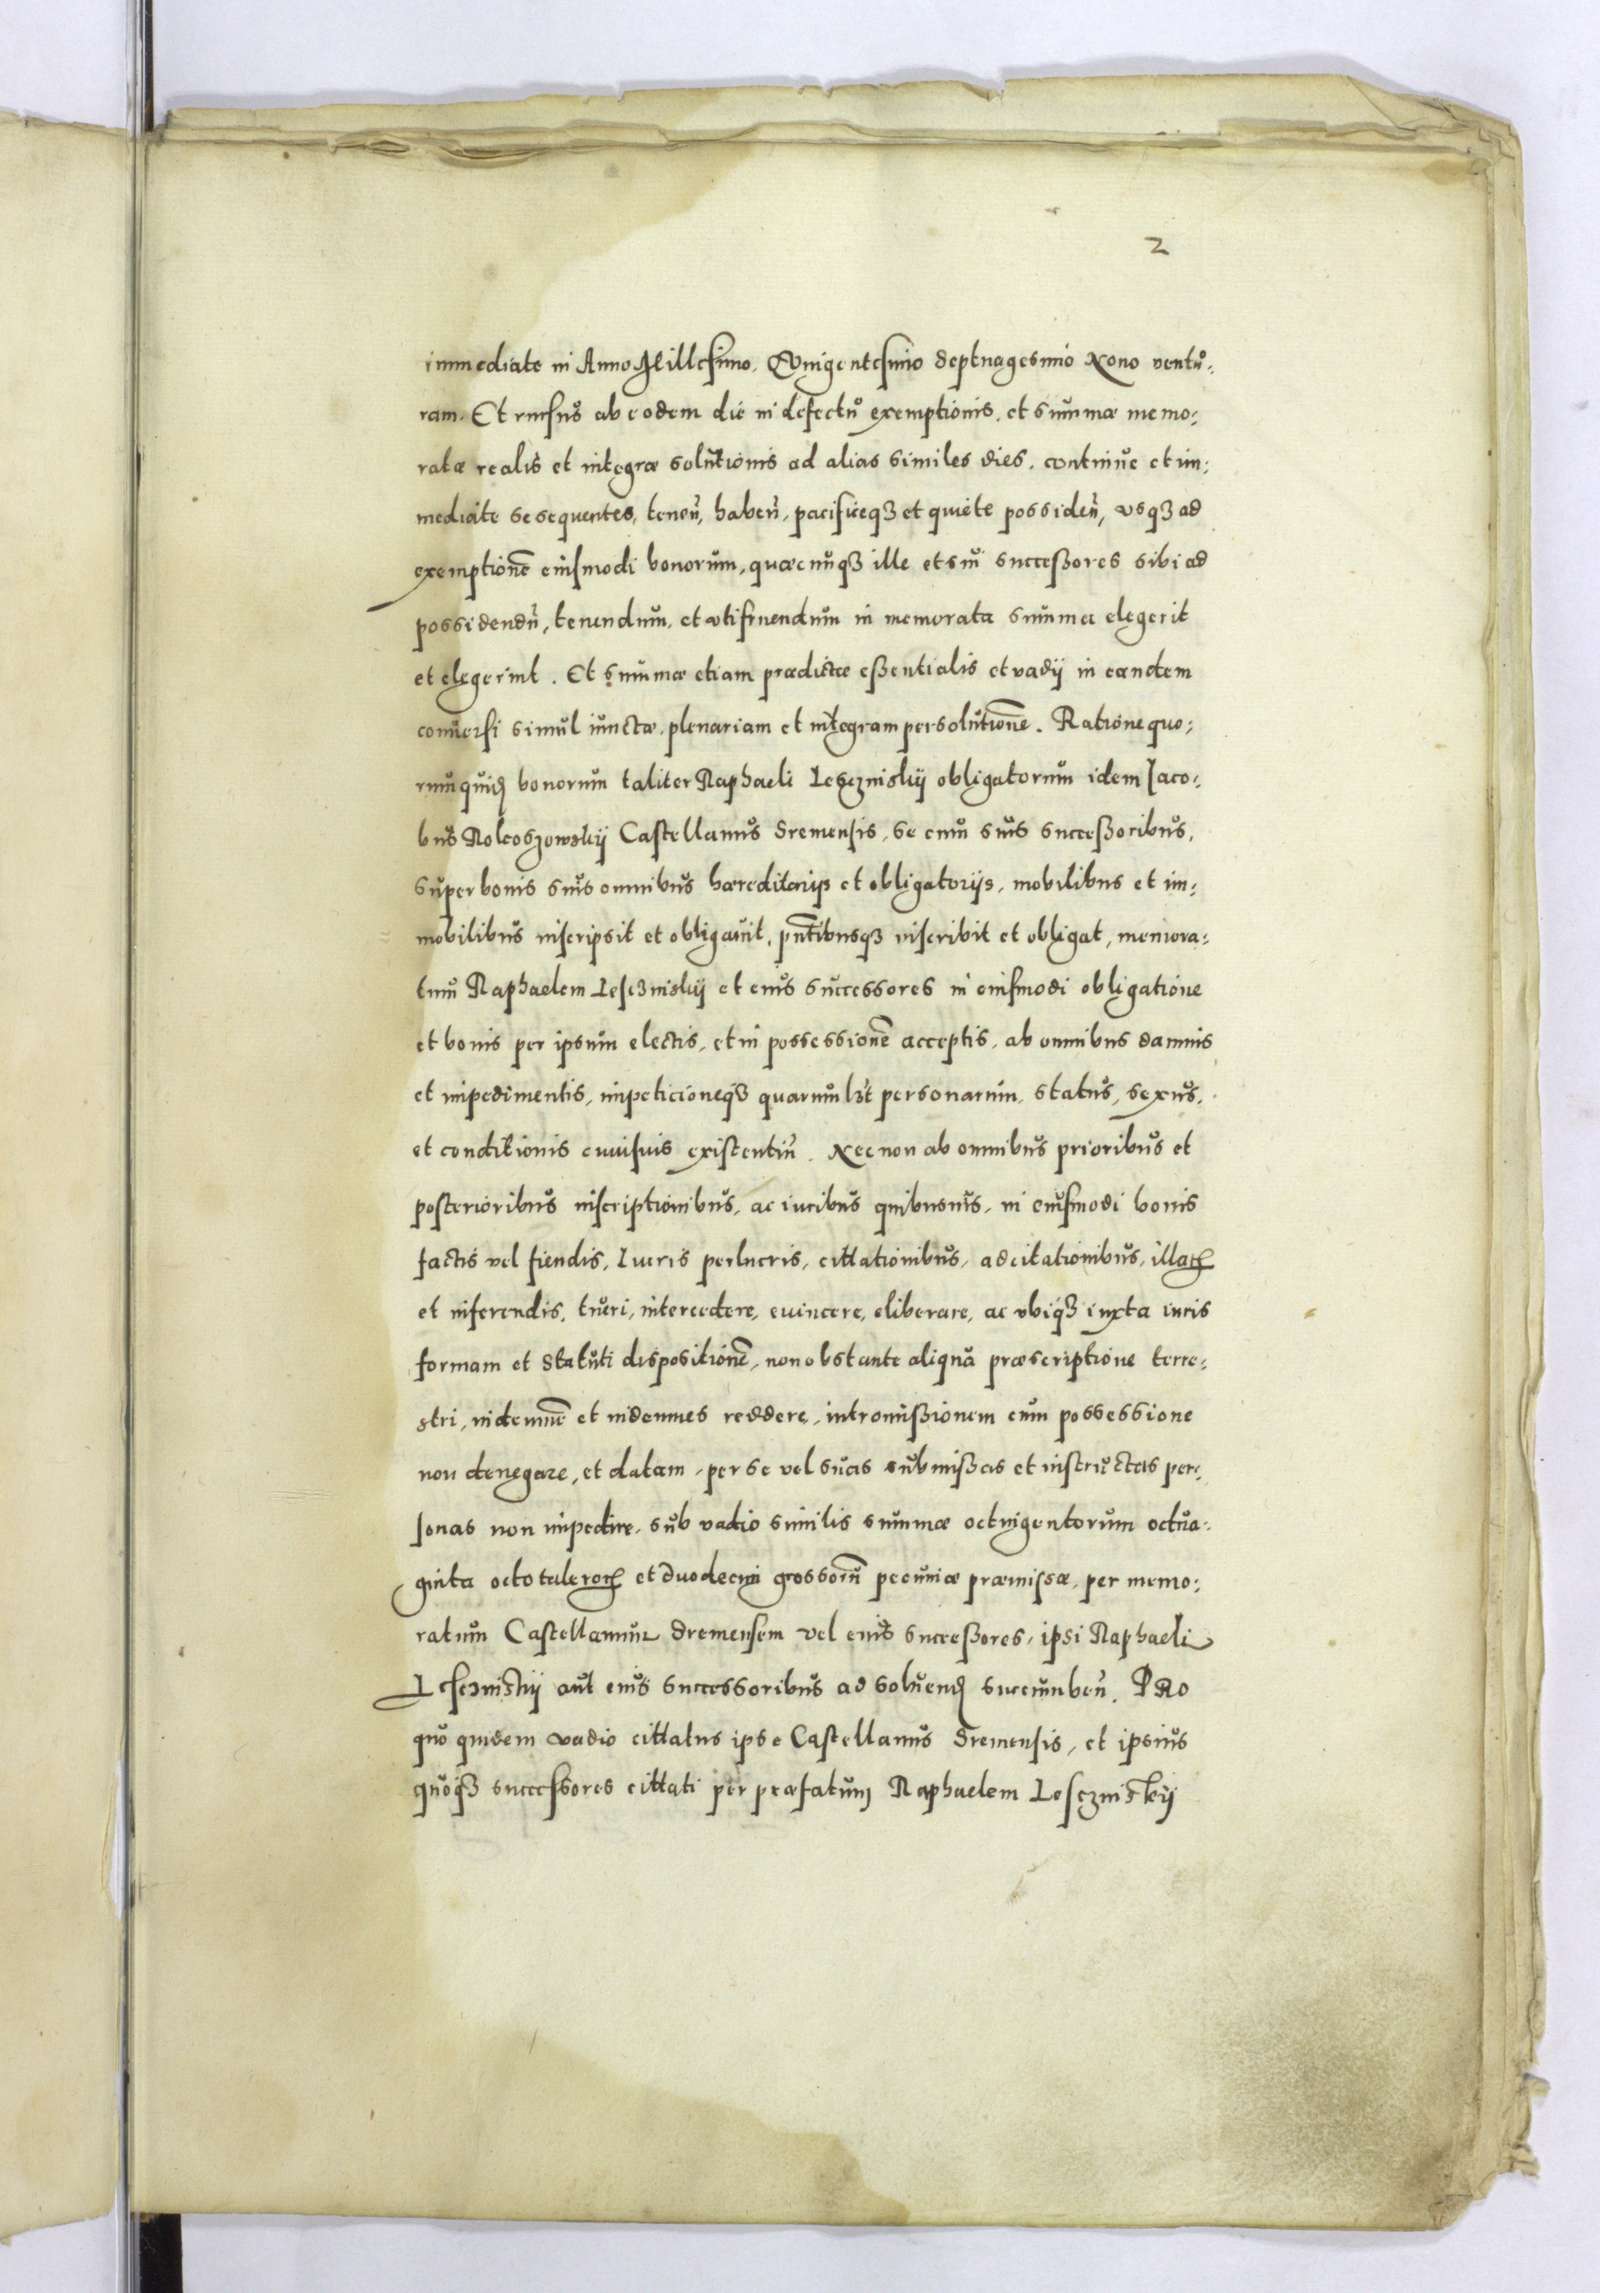 2
immediate in Anno Millesimo. Quingentesimo Septuagesimo Nono ventu:
ram. Et rursus ab eodem die in defectu exemptionis, et summæ memo:
ratæ realis et integræ solutionis ad alias similes dies, continue et im:
mediate sesequentes, tenen̄, haben̄, pacificeqꝫ et quiete possiden̄, vsqꝫ ad
exemptionē eiusmodi bonorum, quæcunqꝫ ille et sui successores sibi ad
possidendū, tenendum, et vtifruendum in memorata summa elegerit
et elegerint. Et summæ etiam prædictæ essentialis et vadij in eandem
conuersi simul iunctæ, plenariam et integram persolutionē. Ratione quo:
rum quid bonorum taliter Raphaeli Lesczniskij obligatorum idem Jaco:
bus Castellanus Sremensis, se cum suis successoribus,
super bonis suis omnibus hæreditarijs et obligatorijs, mobilibus et im:
mobilibus inscripsit et obligauit, pn̄tibusqꝫ inscribit et obligat, memora:
tum Raphaelem Lesczniskij et eius successores in eiusmodi obligatione
et bonis per ipsum electis, et in possessionē acceptis, ab omnibus damnis
et impedimentis, impeticioneqꝫ quarumlꝫt personarum, status, sexus,
et conditionis cuiusuis existentiū. Nec non ab omnibus prioribus et
posterioribus inscriptionibus, ac iuribus quibusuis, in eiusmodi bonis
factis vel fiendis, lucris perlucris, cittationibus, adcitationibus, illatꝭ
et inferendis, tueri, intercedere, euincere, eliberare, ac vbiqꝫ iuxta iuris
formam et Statuti dispositionē, non obstante aliqua præscriptione terre:
stri, indemnē et indemnes reddere, intromissionem cum possessione
non denegare, et datam, per se vel suas submissas et instructas per:
sonas non impedire, sub vadio similis summæ octingentorum octua:
ginta octo talerorꝝ et Duodecim grossorū pecuniæ præmissæ, per memo:
ratum Castellanum Sremensem vel eius successores, ipsi Raphaeli
Lesczniskij aut eius successoribus ad soluend succumben̄. PRo
quo quidem vadio cittatus ipse Castellanus Sremensis, et ipsius
quoqꝫ successores cittati per præfatum Raphaelem Lesczniskij